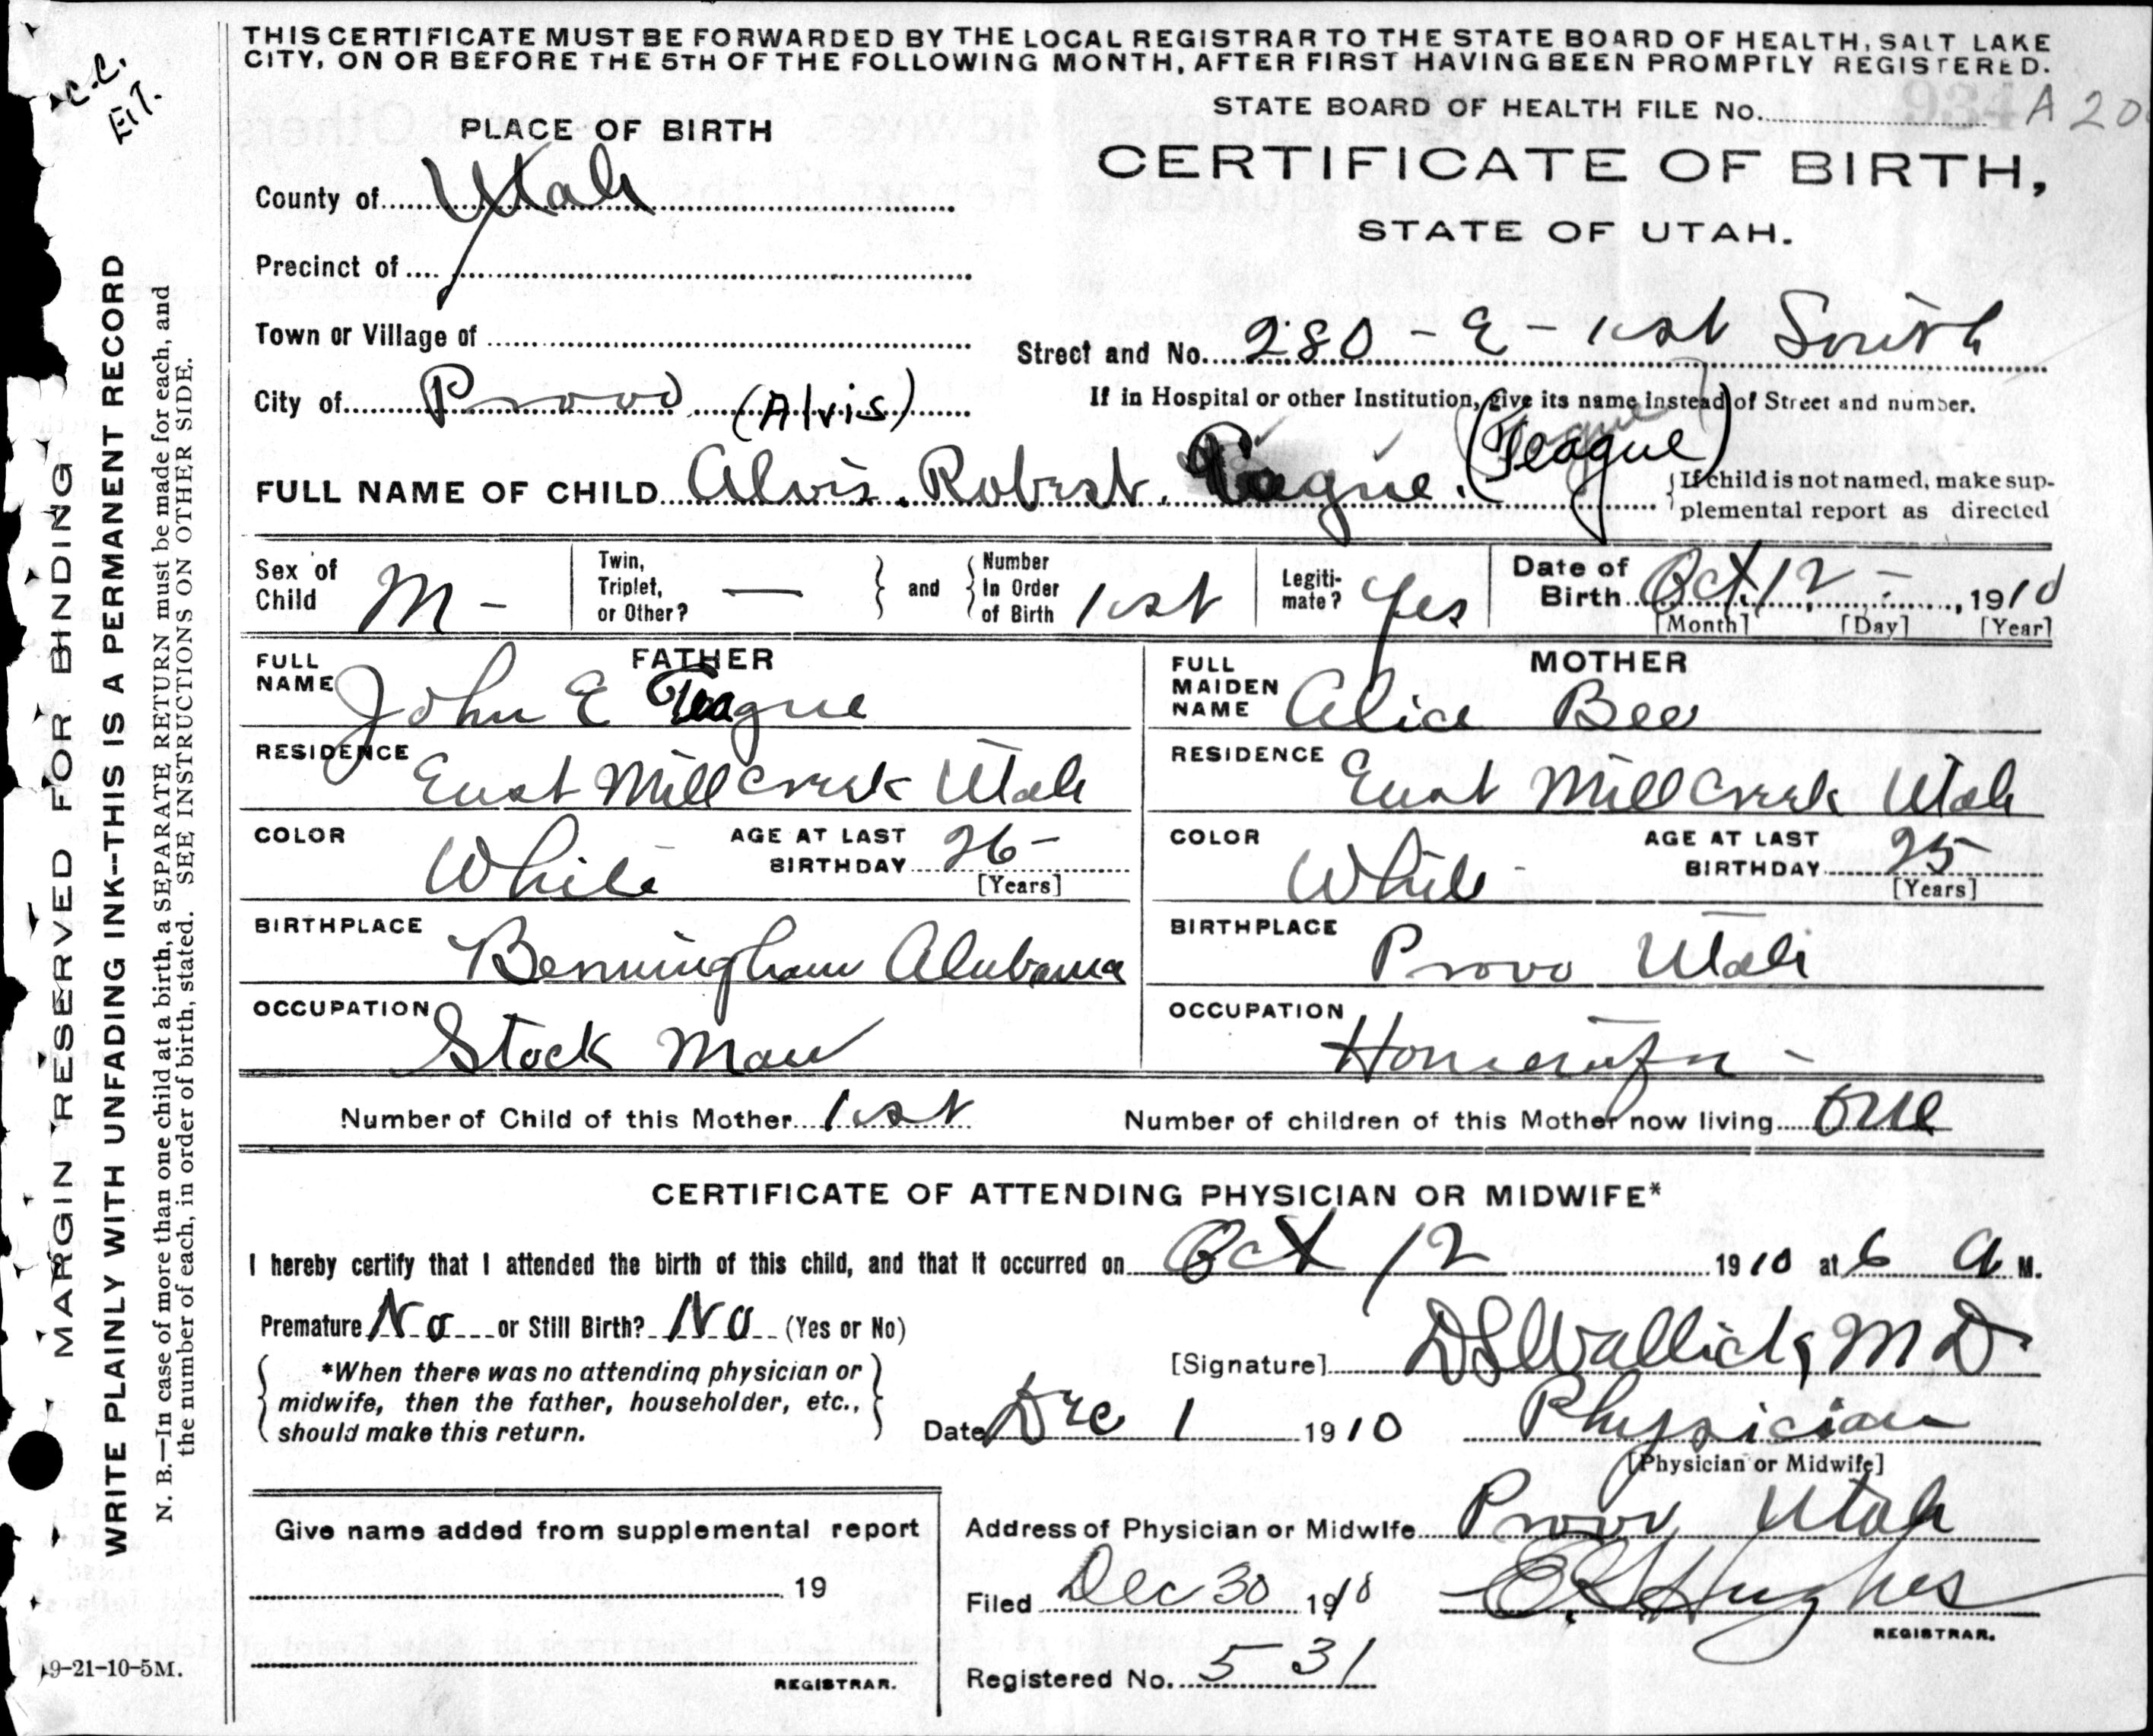 THIS CERTIFICATE MUST BE FORWARDED BY THE LOCAL REGISTRAR TO THE STATE BOARD OF HEALTH, SALT LAKE
CITY, ON OR BEFORE THE 5TH OF THE FOLLOWING MONTH, AFTER FIRST HAVING BEEN PROMPTLY REGISTERED.
C.C.
STATE BOARD OF HEALTH FILE No. 934 A 20
PLACE OF BIRTH
CERTIFICATE OF BIRTH,
STATE OF UTAH.
County of Utah
Precinct of
Town or Village of
Street and No. 280 - E - 1st South
City of Provo (Alvis)
If in Hospital or other Institution, give its name instead of Street and number.
FULL NAME OF CHILD Alvis Robert Teague. (Teague)
If child is not named, make sup-
plemental report as directed
Sex of Child M -
Twin, Triplet, or Other? —
and
Number In Order of Birth 1st
Legiti-mate? Yes
Date of Birth Oct 12 -, 1910
[Month] [Day] [Year]
FATHER
FULL NAME John E Teague
RESIDENCE East Mill Creek Utah
COLOR White
AGE AT LAST BIRTHDAY 26 -
[Years]
BIRTHPLACE Bermingham Alabama
OCCUPATION Stock Man
MOTHER
FULL MAIDEN NAME Alice Bee
RESIDENCE East Mill Creek Utah
COLOR White
AGE AT LAST BIRTHDAY 25
[Years]
BIRTHPLACE Provo Utah
OCCUPATION Housewife -
Number of Child of this Mother 1st
Number of children of this Mother now living one
CERTIFICATE OF ATTENDING PHYSICIAN OR MIDWIFE*
I hereby certify that I attended the birth of this child, and that it occurred on Oct 12 1910 at 6 A M.
Premature No or Still Birth? No (Yes or No)
[Signature] DS Wallick, MD
*When there was no attending physician or
midwife, then the father, householder, etc.,
should make this return.
Date Dec 1 1910
Physician
[Physician or Midwife]
Give name added from supplemental report
19
REGISTRAR.
Address of Physician or Midwife Provo Utah
Filed Dec 30 1910
Hughes
REGISTRAR.
Registered No. 531
9-21-10-5M.
MARGIN RESERVED FOR BINDING
WRITE PLAINLY WITH UNFADING INK--THIS IS A PERMANENT RECORD
N. B.—In case of more than one child at a birth, a SEPARATE RETURN must be made for each, and
the number of each, in order of birth, stated. SEE INSTRUCTIONS ON OTHER SIDE.